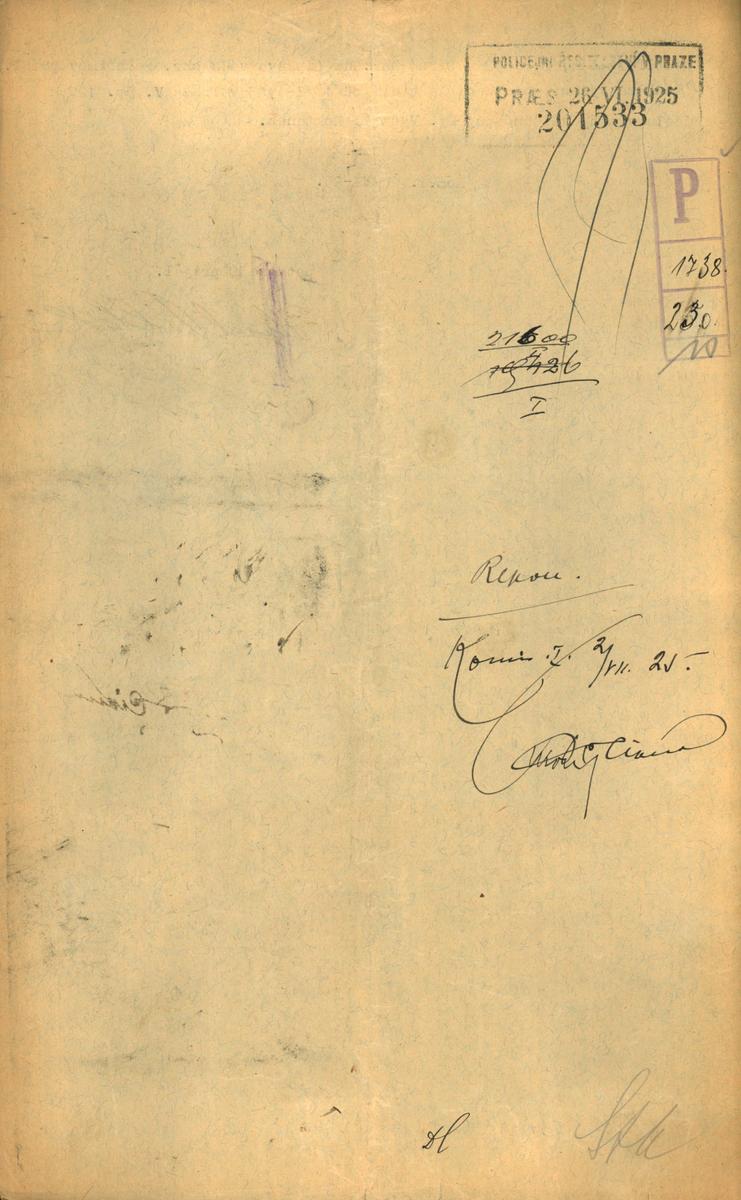 POLICEJNÍ ŘEDITELSTVÍ V PRAZE
PRÆS 26 VI. 1925
201533
P
1738.
230.
10
21600
I
Repon.
Komis. I. 2/VII. 25.
Dl